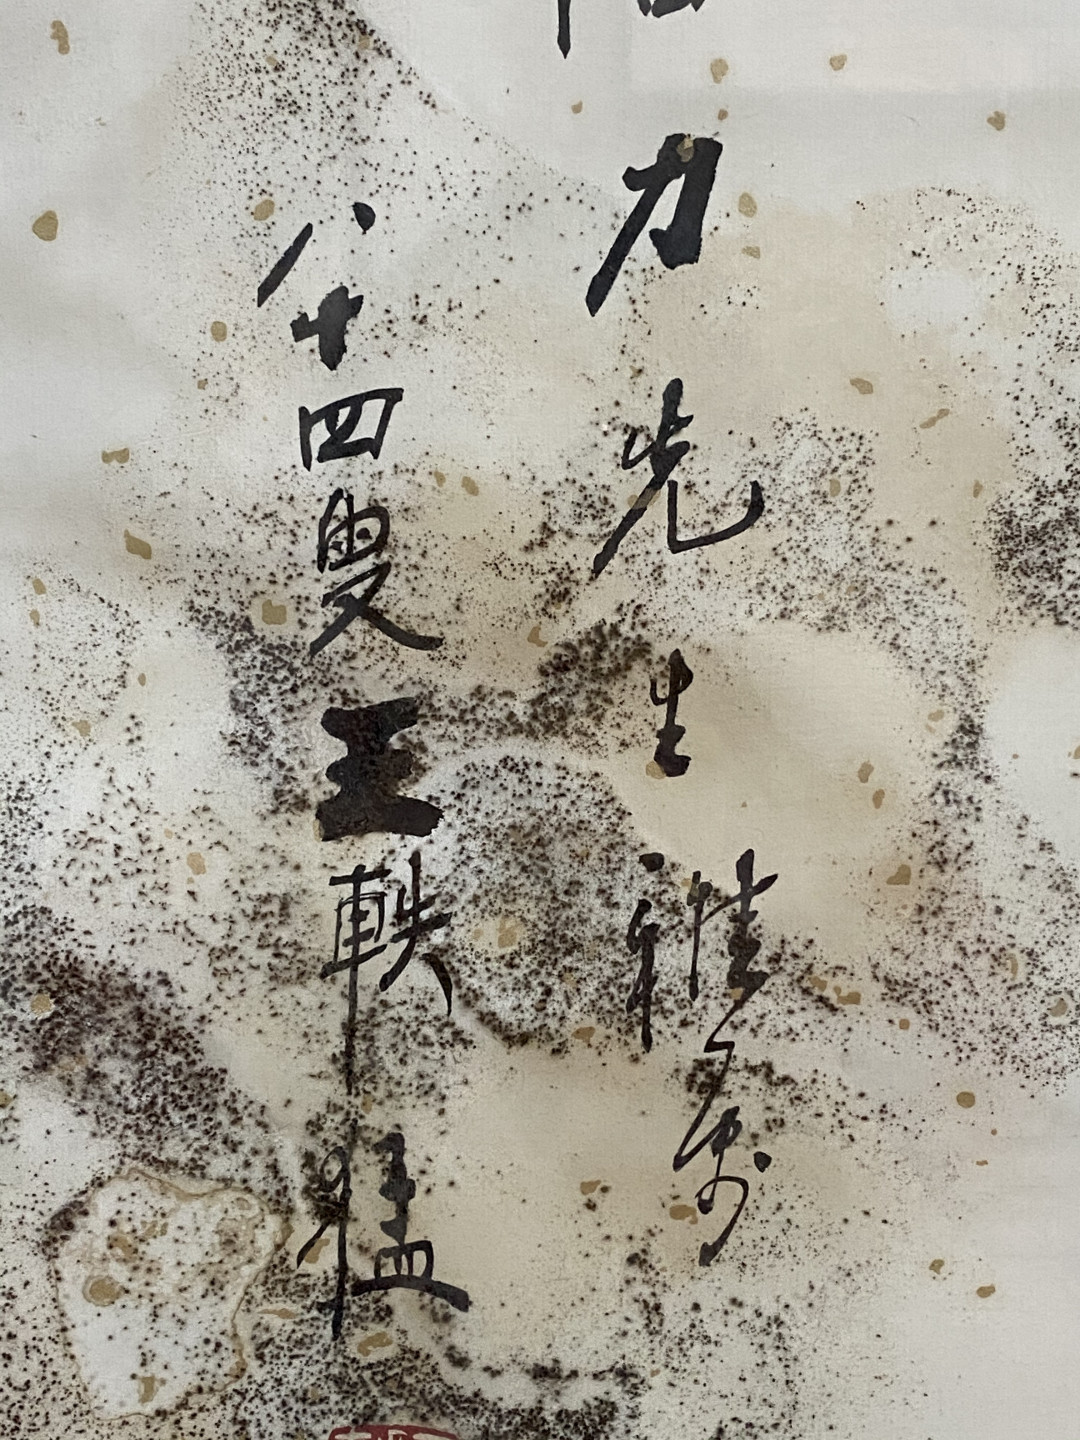 力先生雅属
八十四叟王軼猛